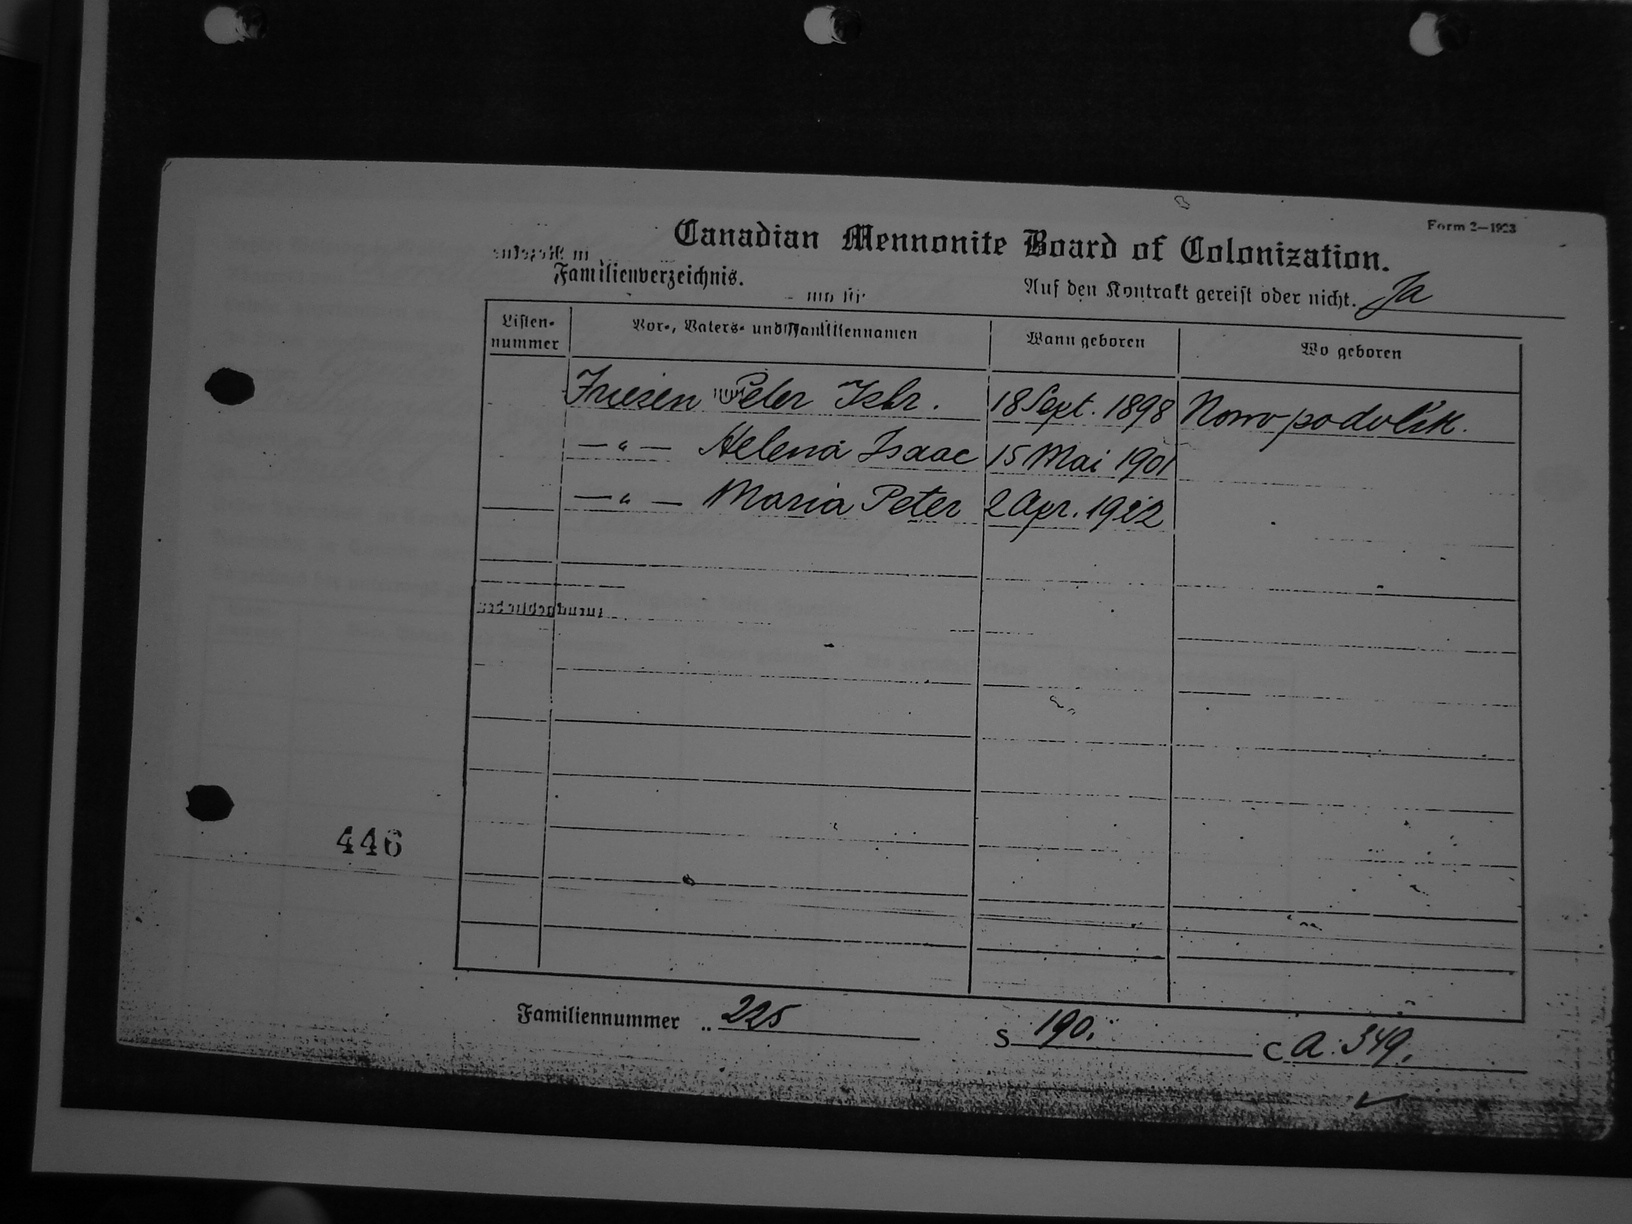 Form 2—1923
Canadian Mennonite Board of Colonization.
Familienverzeichnis.
Auf den Kontrakt gereist oder nicht. Ja
Listen-nummer Vor-, Vaters- und Familiennamen Wann geboren Wo geboren
Friesen Peter Isbr. 18 Sept. 1898 Nowopodolsk.
—"— Helena Isaac 15 Mai 1901
—"— Maria Peter 2 Apr. 1922
446
Familiennummer .. 225 S 190. C A. 349.